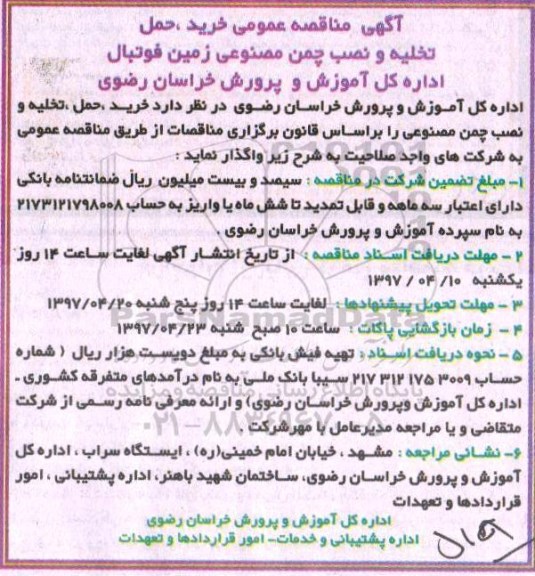 آگهی مناقصه عمومی خرید ،حمل
تخلیه و نصب چمن مصنوعی زمین فوتبال
اداره کل آموزش و پرورش خراسان رضوی
اداره کل آموزش و پرورش خراسان رضوی در نظر دارد خرید ،حمل ،تخلیه و
نصب چمن مصنوعی را براساس قانون برگزاری مناقصات از طریق مناقصه عمومی
به شرکت های واجد صلاحیت به شرح زیر واگذار نماید :
۱- مبلغ تضمین شرکت در مناقصه : سیصد و بیست میلیون ریال ضمانتنامه بانکی
دارای اعتبار سه ماهه و قابل تمدید تا شش ماه یا واریز به حساب ۲۱۷۳۱۲۱۷۹۸۰۰۸
به نام سپرده آموزش و پرورش خراسان رضوی .
۲ - مهلت دریافت اسناد مناقصه : از تاریخ انتشار آگهی لغایت ساعت ۱۴ روز
یکشنبه ۱۰/ ۰۴ / ۱۳۹۷
۳ - مهلت تحویل پیشنهادها : لغایت ساعت ۱۴ روز پنج شنبه ۱۳۹۷/۰۴/۲۰
۴ - زمان بازگشایی پاکات : ساعت ۱۰ صبح شنبه ۱۳۹۷/۰۴/۲۳
۵ - نحوه دریافت اسناد : تهیه فیش بانکی به مبلغ دویست هزار ریال ( شماره
حساب ۳۰۰۹ ۱۷۵ ۳۱۲ ۲۱۷ سیبا بانک ملی به نام درآمدهای متفرقه کشوری -
اداره کل آموزش وپرورش خراسان رضوی) و ارائه معرفی نامه رسمی از شرکت
متقاضی و یا مراجعه مدیرعامل با مهرشرکت .
۶- نشانی مراجعه : مشهد ، خیابان امام خمینی(ره) ، ایستگاه سراب ، اداره کل
آموزش و پرورش خراسان رضوی، ساختمان شهید باهنر، اداره پشتیبانی ، امور
قراردادها و تعهدات
اداره کل آموزش و پرورش خراسان رضوی
اداره پشتیبانی و خدمات- امور قراردادها و تعهدات
ParsNamadData
پایگاه اطلاع رسانی مناقصه و مزایده